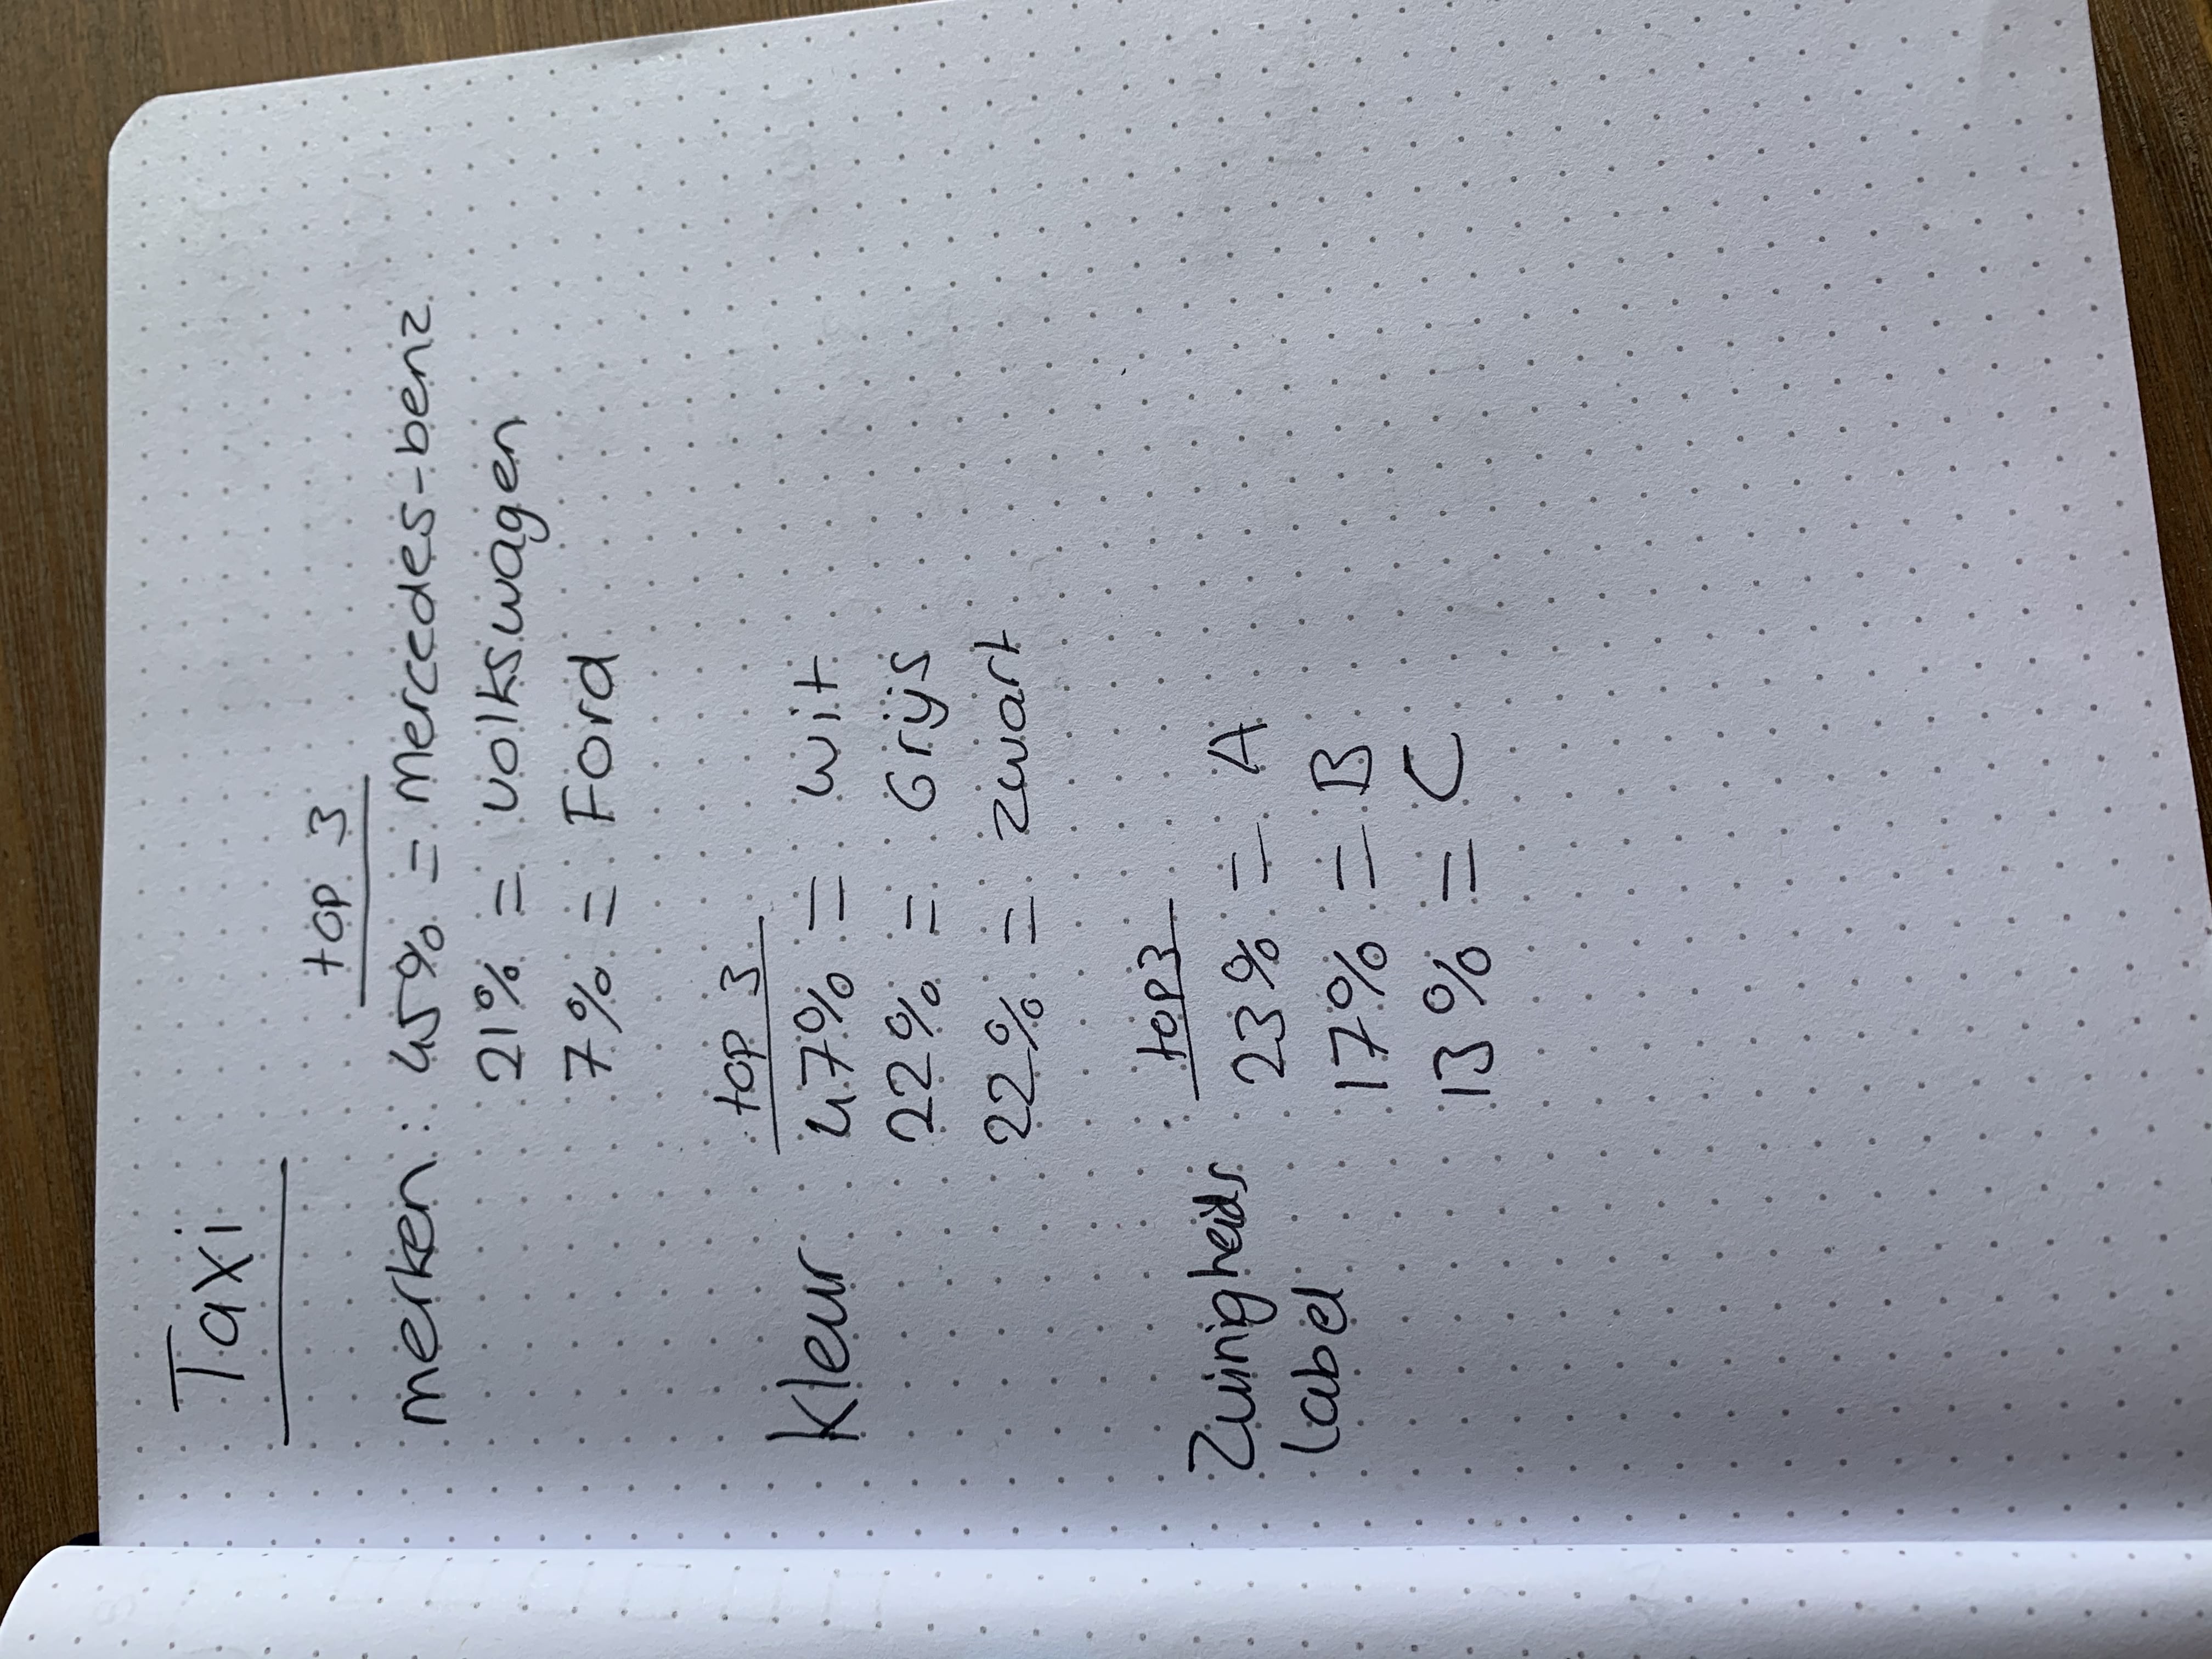 Taxi
top 3
merken: 45% = Mercedes-benz
21% = Volkswagen
7% = Ford
top 3
Kleur 47% = Wit
22% = Grijs
22% = Zwart
top 3
Zuinigheids 23% = A
label
17% = B
13% = C